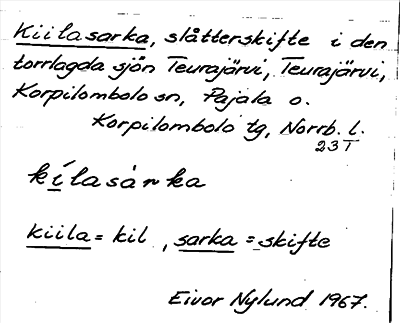 Kiilasarka, slåtterskifte i den
torrlagda sjön Teurajärvi, Teurajärvi,
Korpilombolo sn, Pajala o.
Korpilombolo tg, Norrb. l.
23 I
kílasàrka
kiila = kil, sarka = skifte
Eivor Nylund 1967.